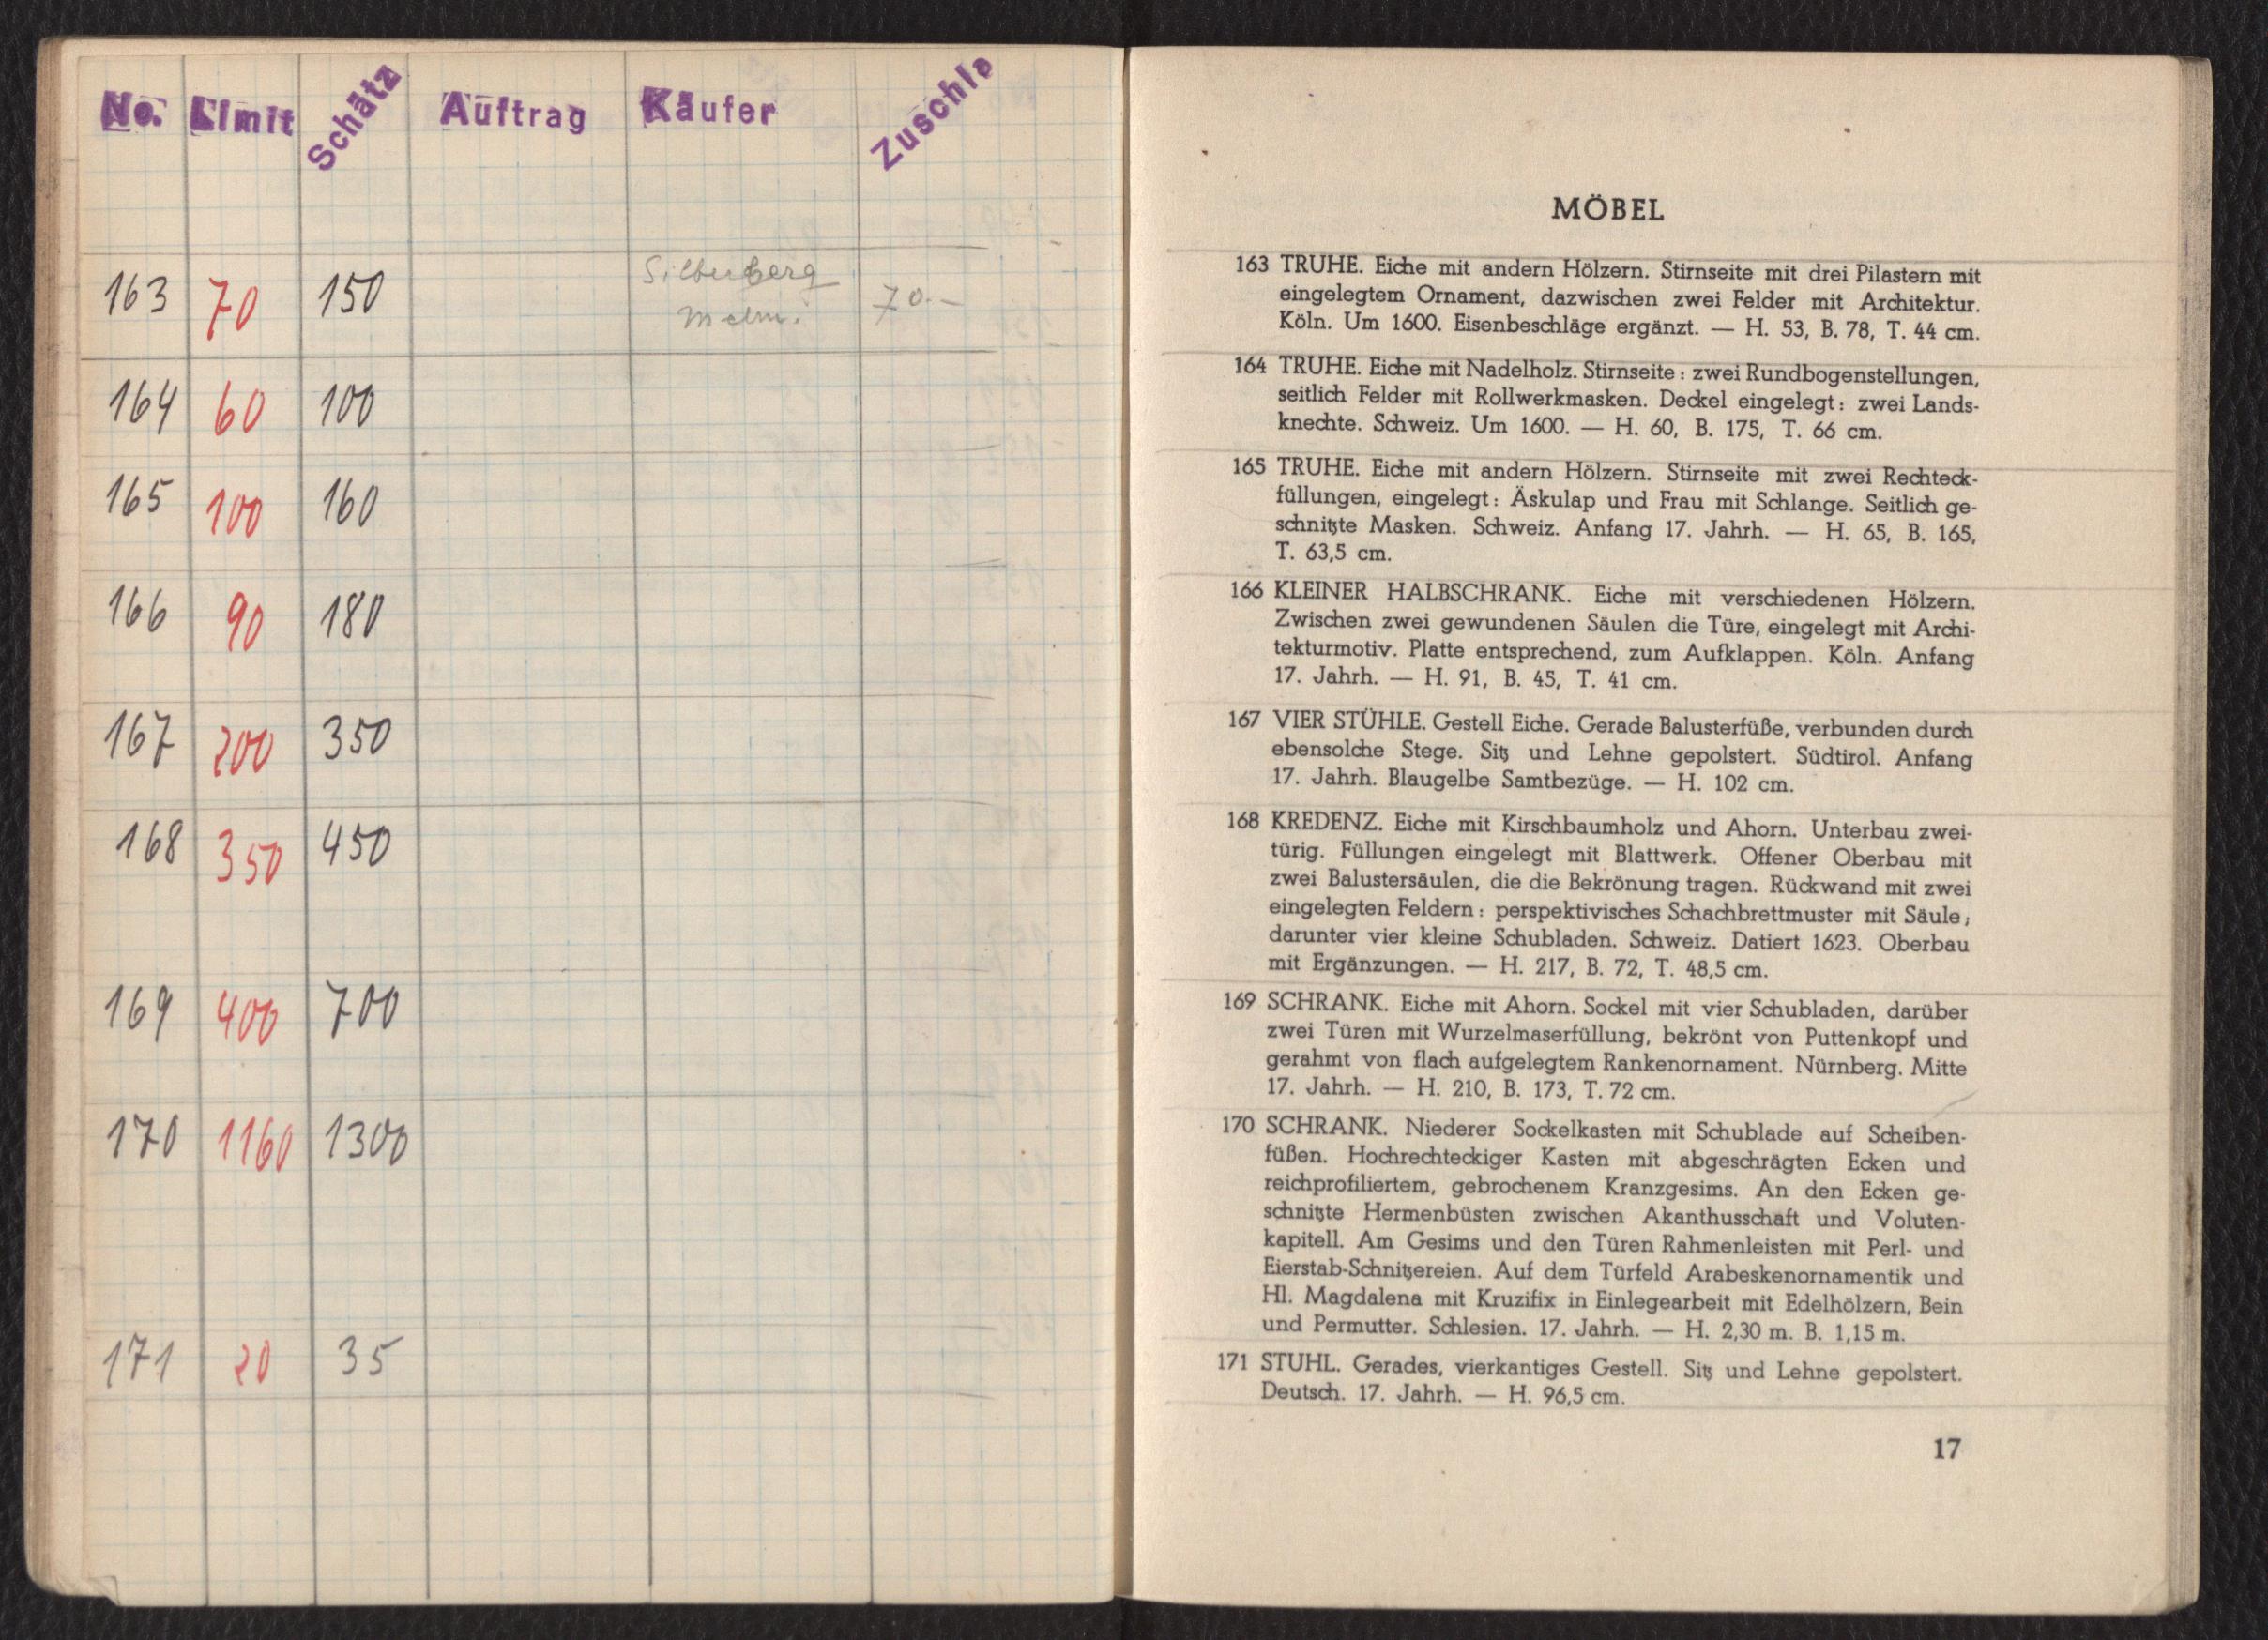 No. Limit Schätz Auftrag Käufer Zuschla
163 70 150 Silberberg 70.-
164 60 100
165 100 160
166 90 180
167 200 350
168 350 450
169 400 700
170 1160 1300
171 20 35
MÖBEL
163 TRUHE. Eiche mit andern Hölzern. Stirnseite mit drei Pilastern mit
eingelegtem Ornament, dazwischen zwei Felder mit Architektur.
Köln. Um 1600. Eisenbeschläge ergänzt. — H. 53, B. 78, T. 44 cm.
164 TRUHE. Eiche mit Nadelholz. Stirnseite: zwei Rundbogenstellungen,
seitlich Felder mit Rollwerkmasken. Deckel eingelegt: zwei Lands-
knechte. Schweiz. Um 1600. — H. 60, B. 175, T. 66 cm.
165 TRUHE. Eiche mit andern Hölzern. Stirnseite mit zwei Rechteck-
füllungen, eingelegt: Äskulap und Frau mit Schlange. Seitlich ge-
schnitzte Masken. Schweiz. Anfang 17. Jahrh. — H. 65, B. 165,
T. 63,5 cm.
166 KLEINER HALBSCHRANK. Eiche mit verschiedenen Hölzern.
Zwischen zwei gewundenen Säulen die Türe, eingelegt mit Archi-
tekturmotiv. Platte entsprechend, zum Aufklappen. Köln. Anfang
17. Jahrh. — H. 91, B. 45, T. 41 cm.
167 VIER STÜHLE. Gestell Eiche. Gerade Balusterfüße, verbunden durch
ebensolche Stege. Sitz und Lehne gepolstert. Südtirol. Anfang
17. Jahrh. Blaugelbe Samtbezüge. — H. 102 cm.
168 KREDENZ. Eiche mit Kirschbaumholz und Ahorn. Unterbau zwei-
türig. Füllungen eingelegt mit Blattwerk. Offener Oberbau mit
zwei Balustersäulen, die die Bekrönung tragen. Rückwand mit zwei
eingelegten Feldern: perspektivisches Schachbrettmuster mit Säule;
darunter vier kleine Schubladen. Schweiz. Datiert 1623. Oberbau
mit Ergänzungen. — H. 217, B. 72, T. 48,5 cm.
169 SCHRANK. Eiche mit Ahorn. Sockel mit vier Schubladen, darüber
zwei Türen mit Wurzelmaserfüllung, bekrönt von Puttenkopf und
gerahmt von flach aufgelegtem Rankenornament. Nürnberg. Mitte
17. Jahrh. — H. 210, B. 173, T. 72 cm.
170 SCHRANK. Niederer Sockelkasten mit Schublade auf Scheiben-
füßen. Hochrechteckiger Kasten mit abgeschrägten Ecken und
reichprofiliertem, gebrochenem Kranzgesims. An den Ecken ge-
schnitzte Hermenbüsten zwischen Akanthusschaft und Voluten-
kapitell. Am Gesims und den Türen Rahmenleisten mit Perl- und
Eierstab-Schnitzereien. Auf dem Türfeld Arabeskenornamentik und
Hl. Magdalena mit Kruzifix in Einlegearbeit mit Edelhölzern, Bein
und Permutter. Schlesien. 17. Jahrh. — H. 2,30 m. B. 1,15 m.
171 STUHL. Gerades, vierkantiges Gestell. Sitz und Lehne gepolstert.
Deutsch. 17. Jahrh. — H. 96,5 cm.
17